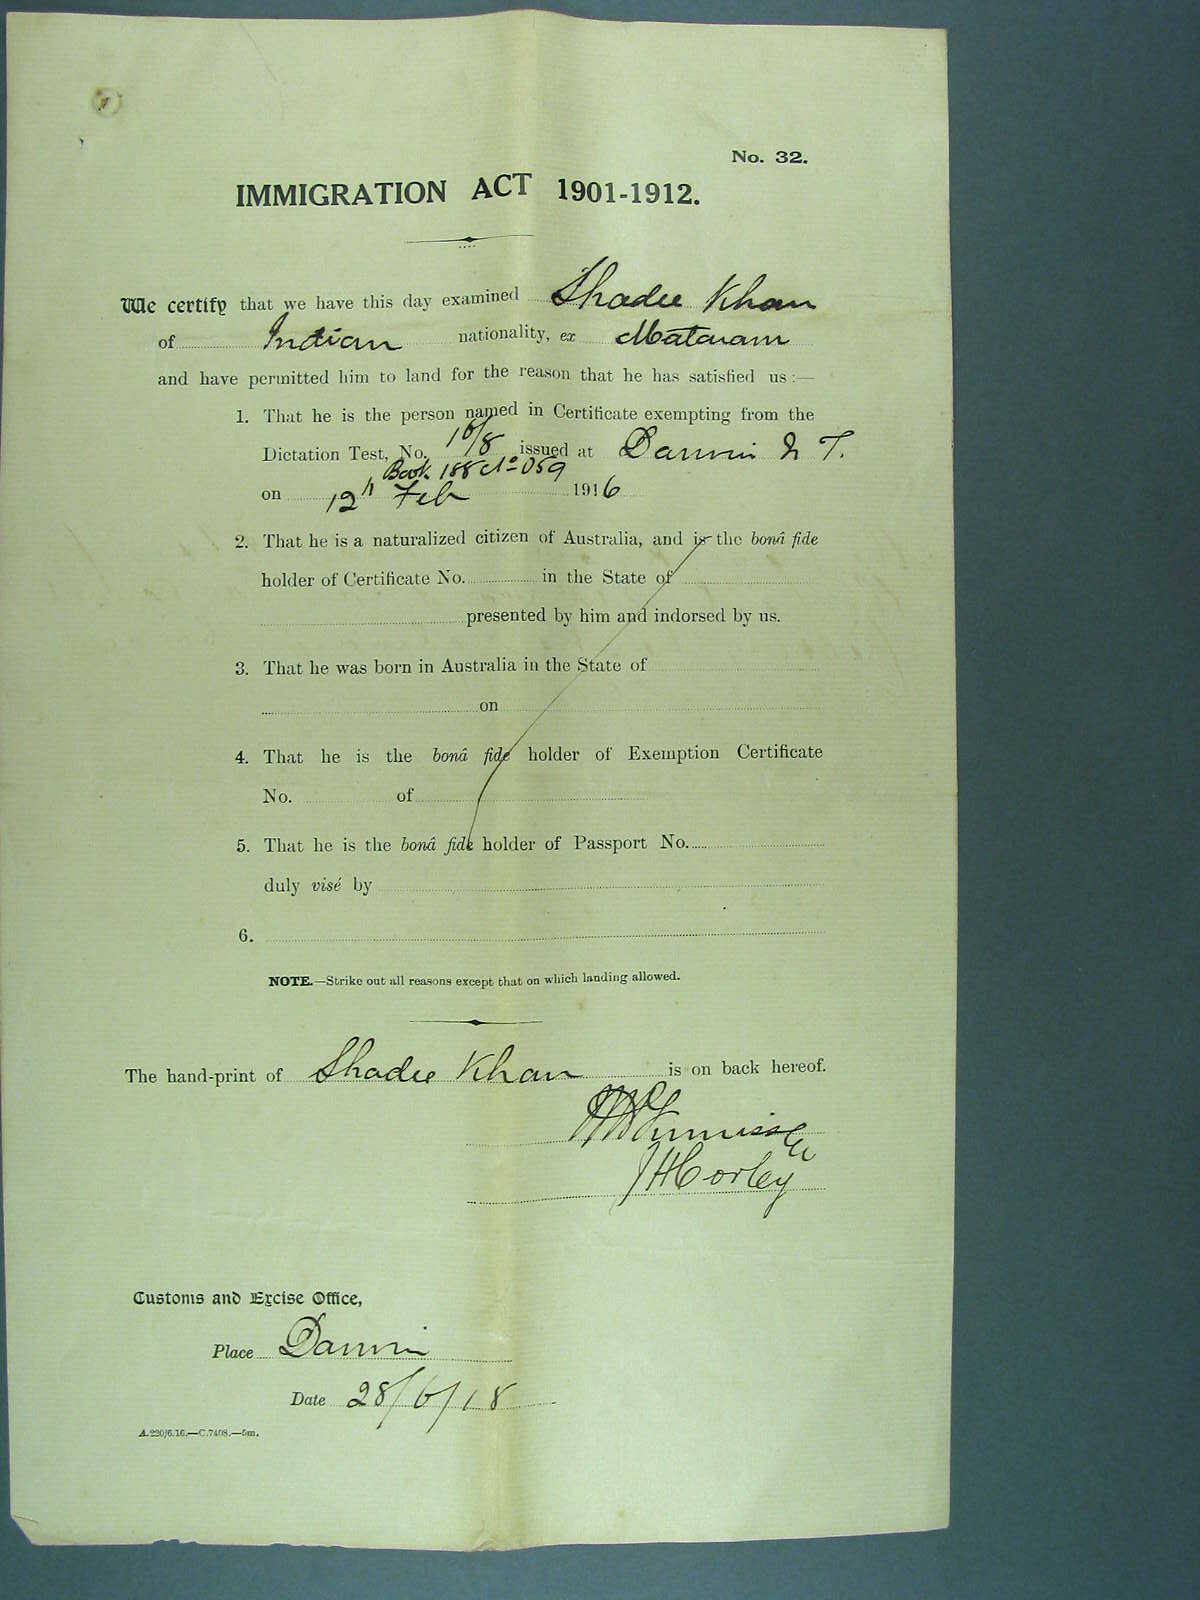 No. 32.
IMMIGRATION ACT 1901-1912.
We certify that we have this day examined Shadee Khan
of Indian nationality, ex Mataram
and have permitted him to land for the reason that he has satisfied us :—
1. That he is the person named in Certificate exempting from the
Dictation Test, No. 16/8 issued at Darwin N T.
Book 188 No 059
on 12th Feb 1916
2. That he is a naturalized citizen of Australia, and is the bonâ fide
holder of Certificate No. in the State of
presented by him and indorsed by us.
3. That he was born in Australia in the State of
on
4. That he is the bonâ fide holder of Exemption Certificate
No. of
5. That he is the bonâ fide holder of Passport No.
duly visé by
6.
NOTE.—Strike out all reasons except that on which landing allowed.
The hand-print of Shadee Khan is on back hereof.
JHCorley
Customs and Excise Office,
Place Darwin
Date 28/6/18
A.220/6.16.—C.7408.—5m.